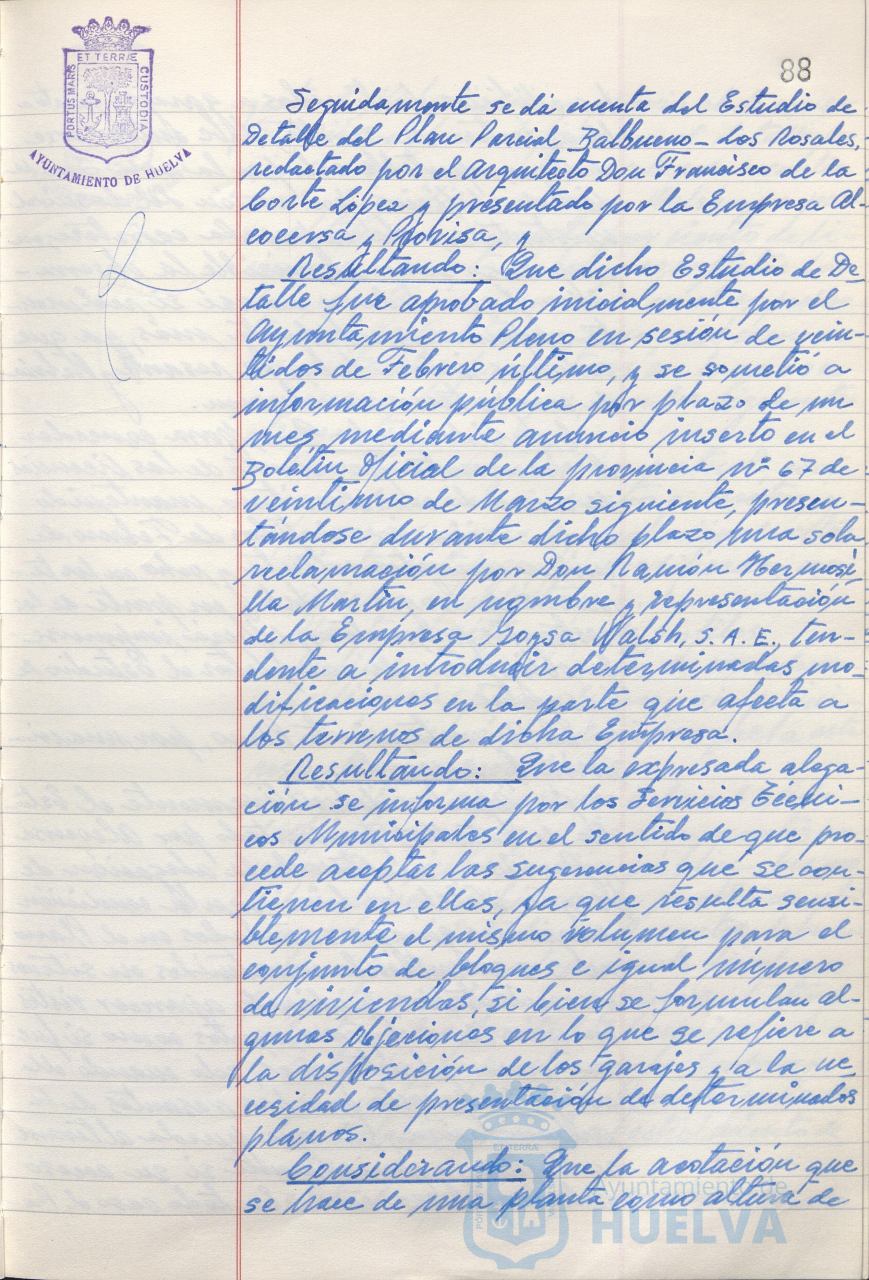 ET TERRÆ
PORTUS MARIS
CUSTODIA
AYUNTAMIENTO DE HUELVA
88
Seguidamente se dá cuenta del Estudio de
Detalle del Plan Parcial Balbueno-Los Rosales,
redactado por el Arquitecto Don Francisco de la
Corte López y presentado por la Empresa Al-
cocersa y Provisa, y
Resultando: Que dicho Estudio de De
talle fue aprobado inicialmente por el
Ayuntamiento Pleno en sesión de vein-
tidos de Febrero último, y se sometió a
información pública por plazo de un
mes, mediante anuncio inserto en el
Boletín Oficial de la provincia nº 67 de
veintiuno de Marzo siguiente, presen-
tándose durante dicho plazo una sola
reclamación por Don Ramón Hermosi
lla Martín, en nombre y representación
de la Empresa Walsh, S.A.E., ten-
dente a introducir determinadas mo-
dificaciones en la parte que afecta a
los terrenos de dicha Empresa.
Resultando: Que la expresada alega-
ción se informa por los Servicios Técni-
cos Municipales en el sentido de que pro-
cede aceptar las sugerencias que se con-
tienen en ellas, ya que resulta sensi-
blemente el mismo volumen para el
conjunto de bloques e igual número
de viviendas, si bien se formulan al-
gunas objeciones en lo que se refiere a
la disposición de los garajes y a la ne
cesidad de presentación de determinados
planos.
Considerando: Que la acotación que
se hace de una planta como altura de
Ayuntamiento de
HUELVA